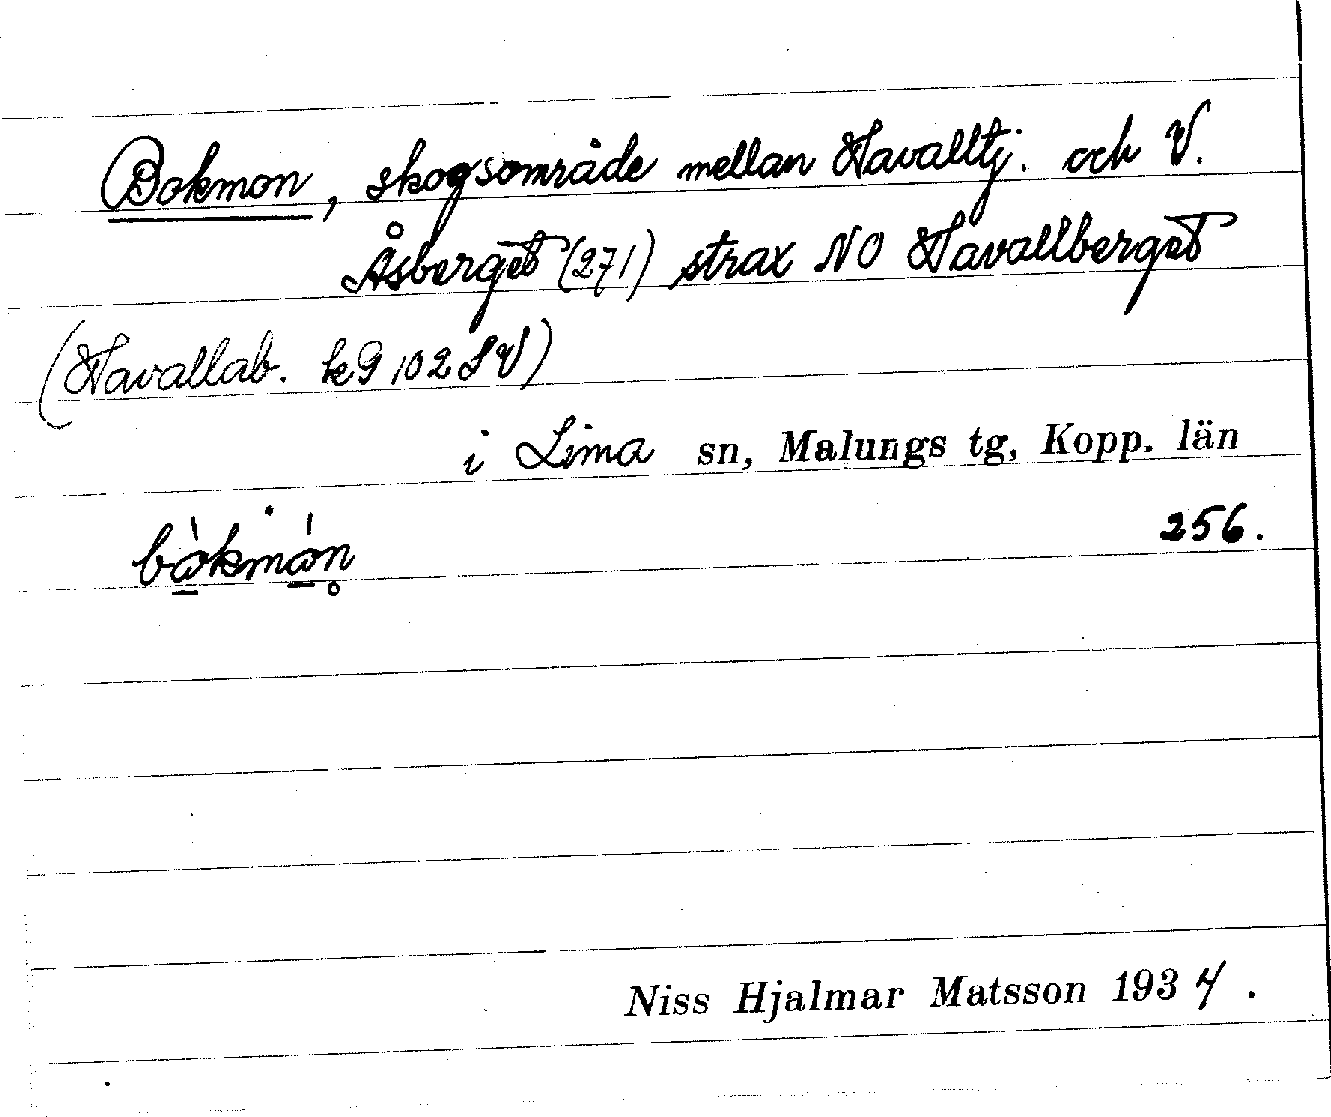 Bokmon, skogsområde mellan Havalltj. och V.
Åsberget (271) strax NO Havallberget
(Havallab. kg 102 SV)
i Lima sn, Malungs tg, Kopp. län
bòkmón̥ 256.
Niss Hjalmar Matsson 1934.